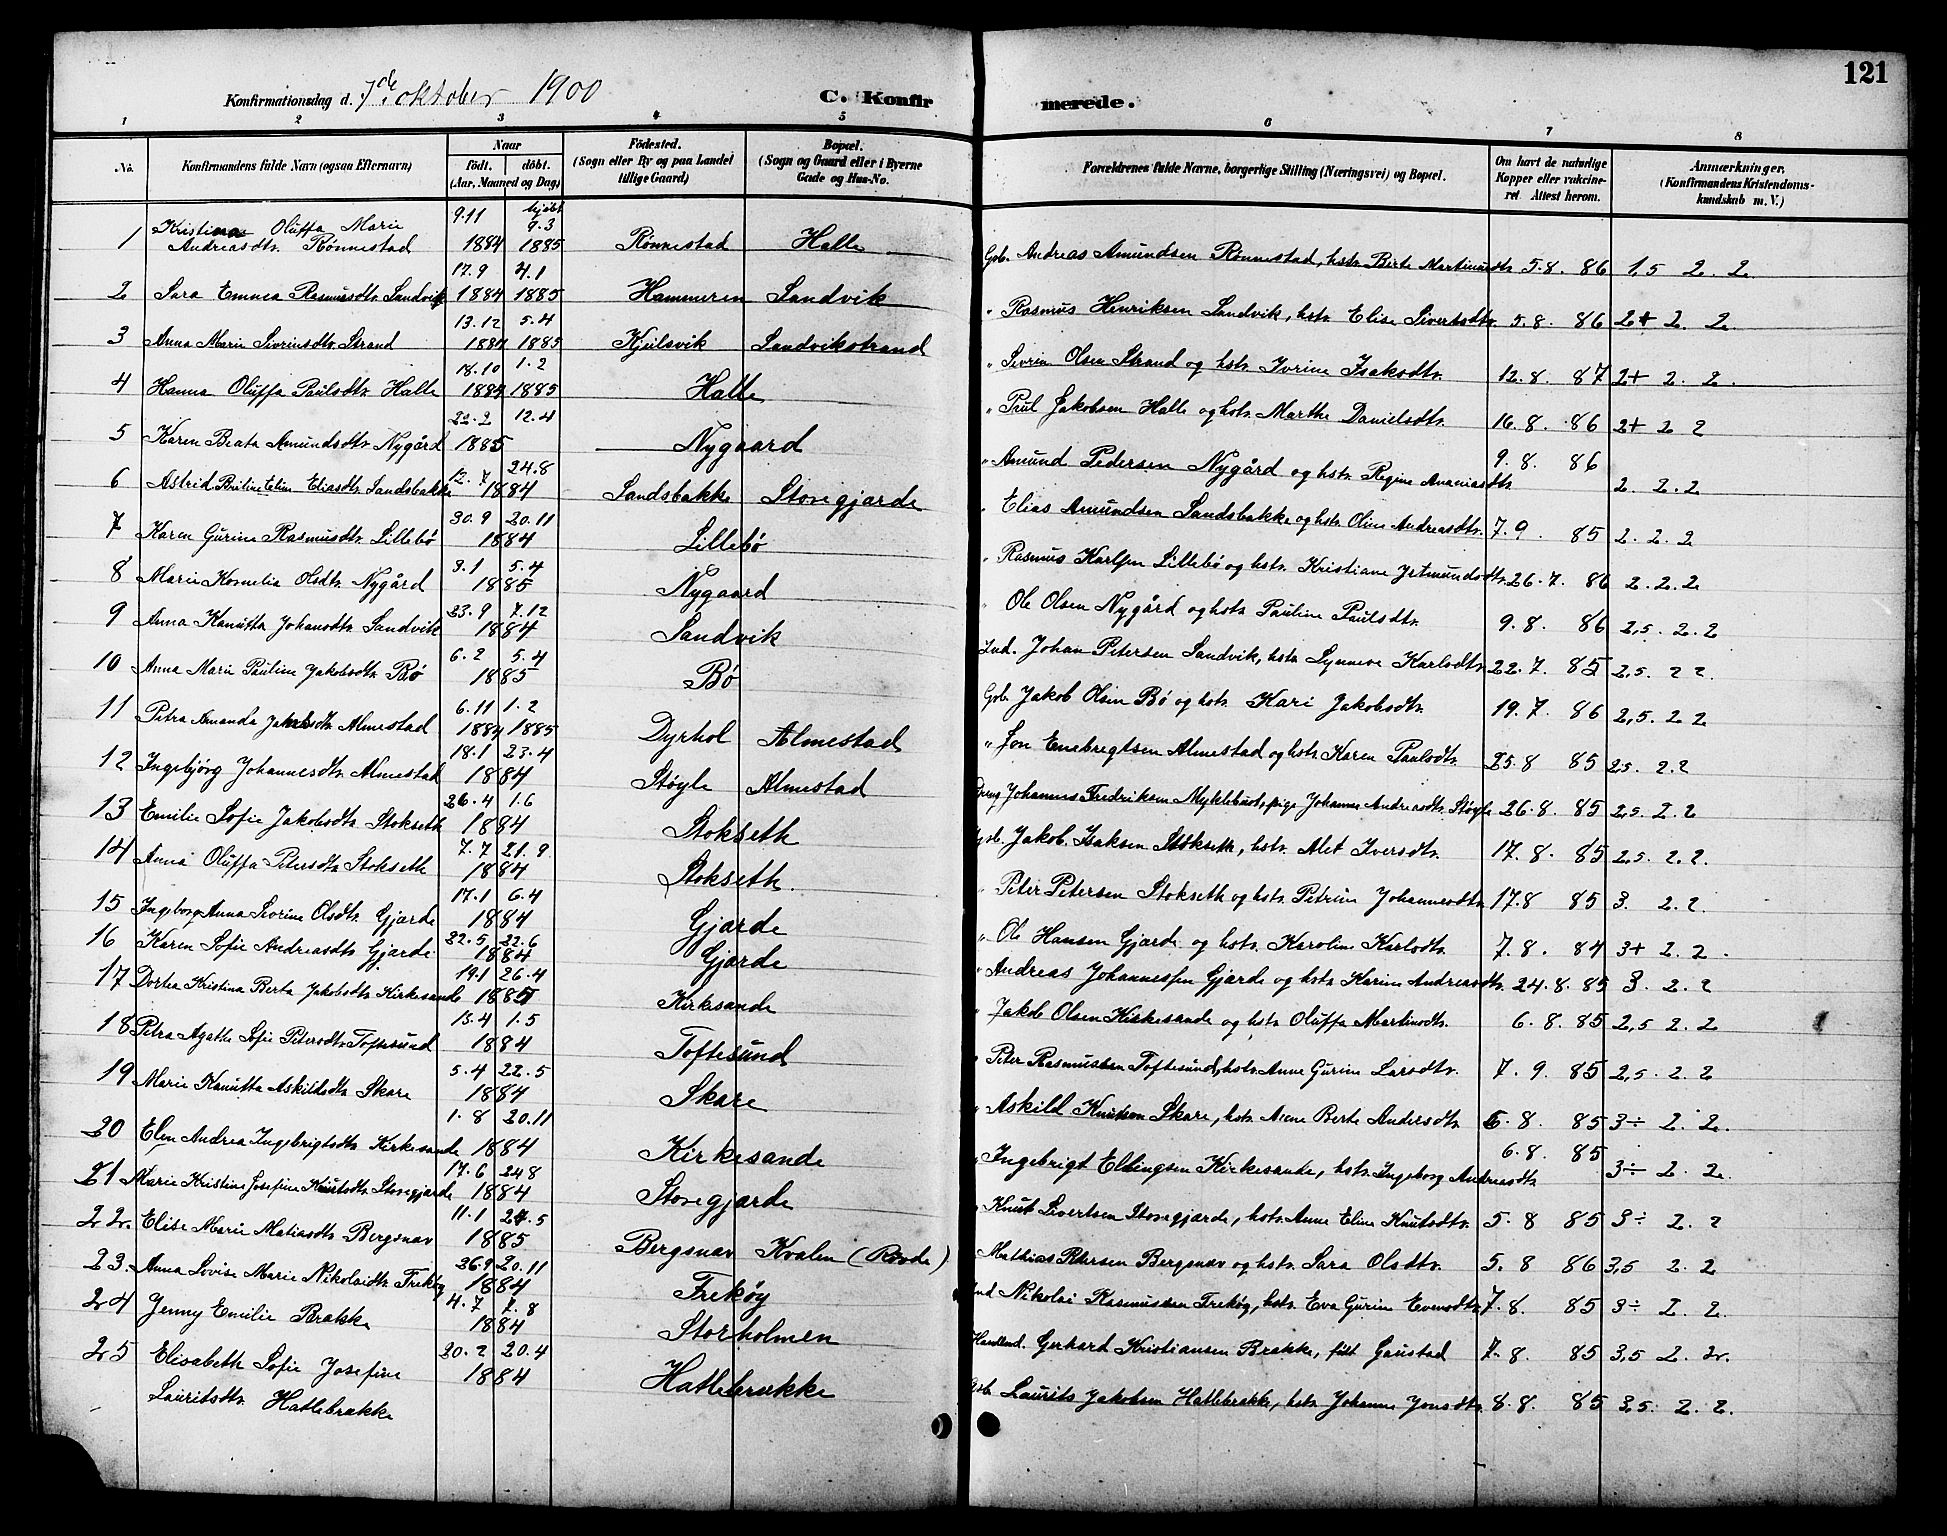 121
Konfirmationsdag d. 7de oktober 1900 C. Konfirmerede.
1 2 3 4 5 6 7 8
No. Konfirmandens fulde Navn (ogsaa Efternavn) Naar födt. döbt. (Aar, Maaned og Dag) Födested. (Sogn eller By og paa Landet tillige Gaard) Bopæl. (Sogn og Gaard eller i Byerne Gade og Hus-No. Forældrenes fulde Navne, borgerlige Stilling (Næringsvei) og Bopæl. Om havt de naturlige Kopper eller vakcineret Attest herom. Anmærkninger. (Konfirmandens Kristendomskundskab m. V.)
1 Kristina Oluffa Marie Andreasdtr. Rønnestad 9.11 1884 hjdbt 9.3 1885 Rønnestad Halle Gbr. Andreas Amundsen Rønnestad, hstr. Birte Martinusdtr 5.8. 86 1,5 2. 2.
2 Sara Emmea Rasmusdtr. Sandvik 17.9 1884 4.1 1885 Hammeren Sandvik " Rasmus Henriksen Sandvik, hstr. Elise Sivertsdtr. 5.8. 86 2+ 2. 2.
3 Anna Marie Sivrinsdtr. Strand 13.12 1884 5.4 1885 Kjeilsvik Sandvikstrand " Sevrin Olsen Strand og hstr. Ivrine Isaksdtr. 12.8. 87 2+ 2. 2.
4 Hanna Oluffa Paulsdtr. Halle 18.10 1884 1.2 1885 Halle " Paul Jakobsen Halle og hstr. Marthe Danielsdtr. 16.8. 86 2+ 2 2
5 Karen Beata Amundsdtr. Nygård 22.2 12.4 1885 Nygaard " Amund Pedersen Nygård og hstr. Regine Ananiasdtr 9.8. 86 2. 2.2
6 Astrid Eliasdtr. Sandsbakke 12.7 24.8 1884 Sandsbakke Storegjærde " Elias Amundsen Sandsbakke og hstr. Oline Andreasdtr. 7.9. 85 2. 2. 2
7 Karen Gurine Rasmusdtr. Lillebø 30.9 20.11 1884 Lillebø " Rasmus Karlsen Lillebø og hstr. Kristiane 26.7. 86 2. 2. 2
8 Marie Kornelia Olsdtr. Nygård 3.1 5.4 1885 Nygaard " Ole Olsen Nygård og hstr. Pauline Paulsdtr. 9.8. 86 2,5. 2. 2
9 Anna Kanutta Johansdtr. Sandvik 23.9 7.12 1884 Sandvik Ind. Johan Petersen Sandvik, hstr. Synneve Karlsdtr. 22.7. 85 2,5. 2 2.
10 Anna Marie Pauline Jakobsdtr. Bø 6.2 5.4 1885 Bø Gbr. Jakob Olsen Bø og hstr. Kari Jakobsdtr. 19.7. 86 2,5. 2 2
11 Petra Amanda Almestad 6.11 1884 1.2 1885 Dyrhol Almestad " Jon Almestad og hstr. Karen Paulsdtr. 25.8 85 2,5. 2.2
12 Ingebjørg Johannesdtr. Almestad 18.1 23.4 1884 Støyle Almestad Johannes Fredriksen Myklebust, pige Johanne Andreasdtr. Støyle 26.8. 85 2,5. 2. 2
13 Emilie Sofie Jakobsdtr. Stokseth 26.4 1.6 1884 Stokseth Gbr. Jakob. Isaksen Stokseth, hstr. Alet Iversdtr. 17.8. 85 2,5. 2.2.
14 Anna Oluffa Petersdtr. Stokseth 7.7 21.9 1884 Stokseth. " Peter Petersen Stokseth og hstr. Petrine Johannesdtr. 17.8 85 3. 2.2.
15 Ingeborg Anna Severine Olsdtr. Gjærde 17.1 6.4 1884 Gjærde " Ole Hansen Gjærde og hstr. Karoline Karlsdtr. 7.8. 84 3+ 2. 2.
16 Karen Sofie Andreasdtr. Gjærde 22.5 22.6 1884 Gjærde " Andreas Johannessen Gjærde og hstr. Karine Andreasdtr. 24.8. 85 3. 2. 2
17 Dortea Kristina Berta Jakobsdtr. Kirkesande 19.1 26.4 1885 Kirkesande " Jakob Olsen Kirkesande og hstr. Oluffa Martinsdtr. 6.8. 85 2,5 2. 2
18 Petra Agathe Sofie Petersdtr. Toftesund 13.4 1.5 1884 Toftesund " Peter Rasmussen Toftesund, hstr. Anne Gurine Larsdtr. 7.9. 85 2,5. 2. 2
19 Marie Kanutta Askildsdtr. Skare 5.4 22.5 1884 Skare " Askild Knutsen Skare, hstr. Anne Berte Andersdtr. 6.8. 85 3÷ 2. 2.
20 Elen Andrea Ingebrigtsdtr. Kirkesande 1.8 20.11 1884 Kirkesande " Ingebrigt Ellingsen Kirkesande, hstr. Ingeborg Andreasdtr. 6.8. 85 3÷ 2. 2.
21 Marie Kristine Josefine Knutsdtr. Storegjærde 17.6 24.8 1884 Storegjærde " Knut Sivertsen Storegjærde, hstr. Anne Eline Knutsdtr. 5.8 85 3÷ 2. 2
22. Elise Marie Matiasdtr. Bergsnav 11.1 24.5 1885 Bergsnav Kvalen (Røvde) " Mathias Petersen Bergsnav og hstr. Sara Olsdtr. 5.8 86 3,5 2. 2
23. Anna Lovise Marie Nikolaidtr. Frekøy 26.9 20.11 1884 Frekøy Ind Nikolai Rasmussen Frekøy, hstr. Eva Gurine Evensdtr. 7.8. 85 3÷ 2. 2.
24 Jenny Emilie Brakke 4.7 7.8 1884 Storholmen Handlend. Gerhard Kristiansen Brakke, født Gaustad 7.8. 85 3,5 2. 2.
25 Elisabeth Sofie Josefine Lauritsdtr. Hatlebrække 20.2 20.4 1884 Hatlebrække Gbr. Laurits Jakobsen Hatlebrække, hstr. Johanne Jonsdtr. 8.8. 85 3,5. 2. 2.